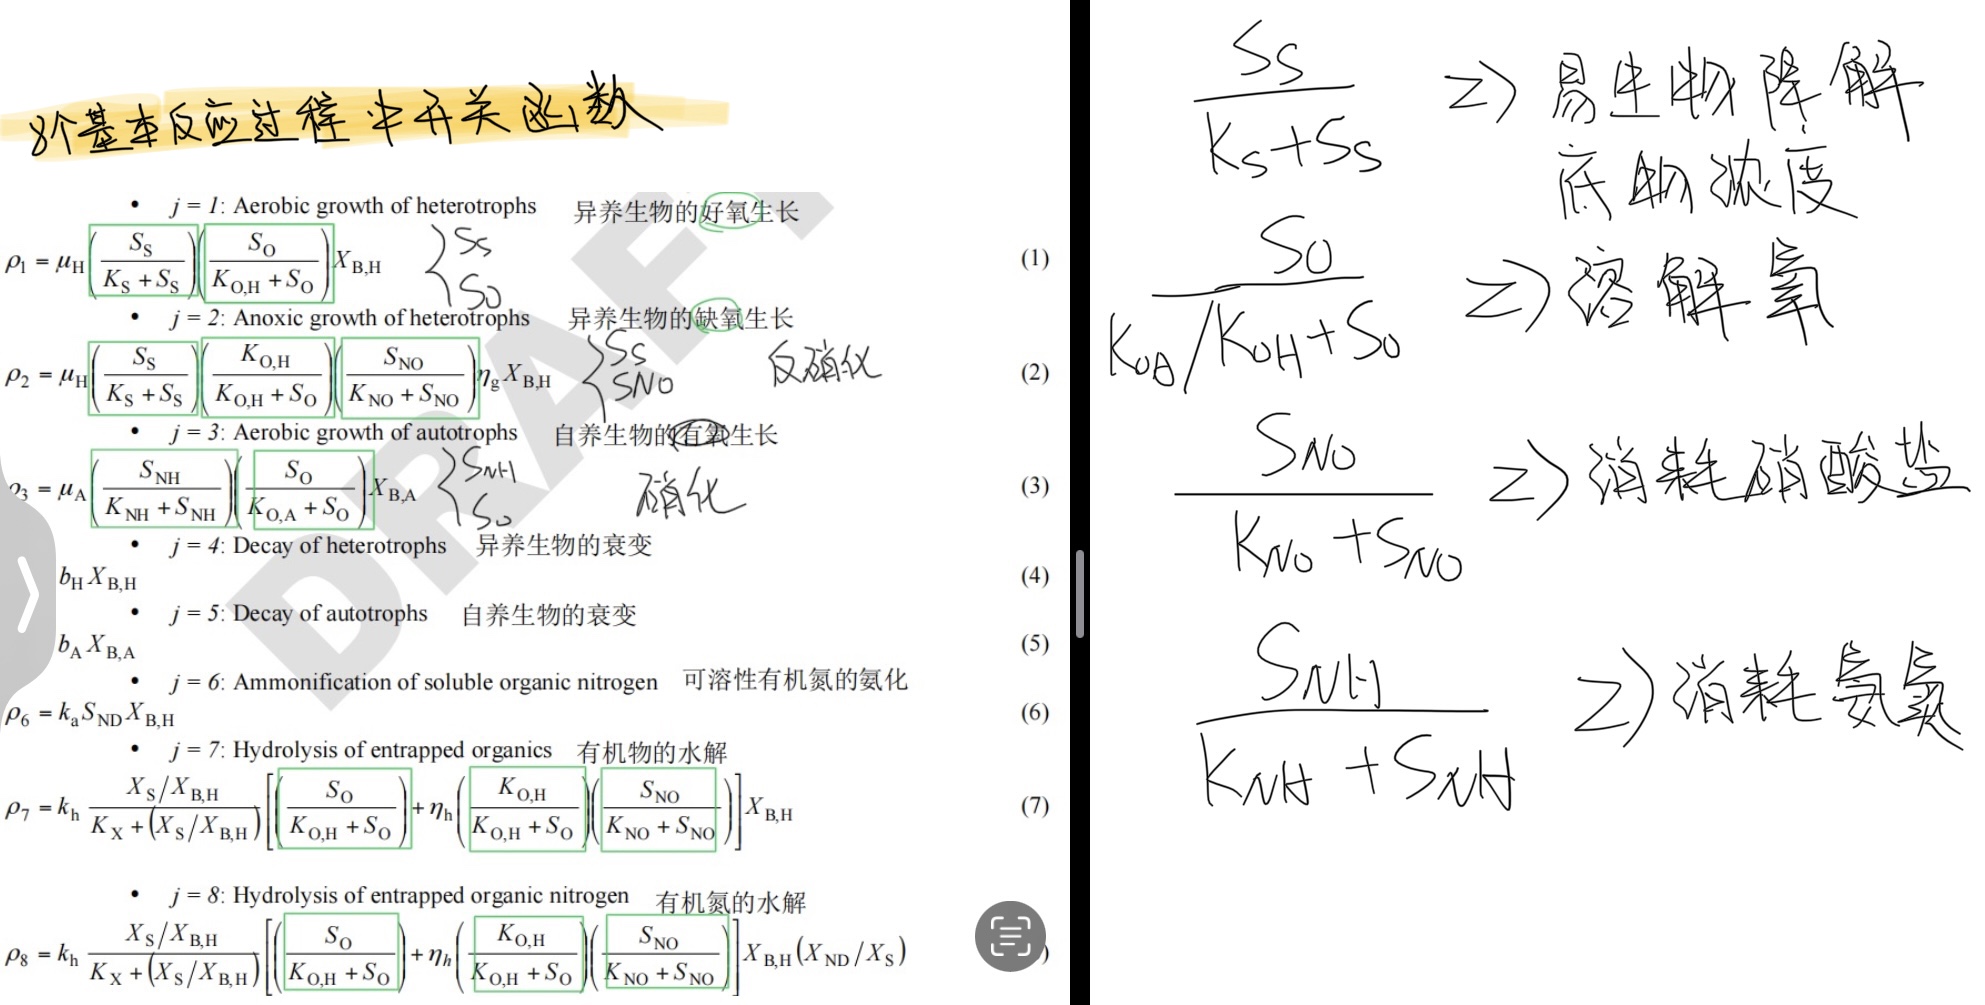 8个基本反应过程中开关函数
• j = 1: Aerobic growth of heterotrophs 异养生物的好氧生长
ρ₁ = μ_H (S_S / (K_S + S_S)) (S_O / (K_O,H + S_O)) X_B,H { S_S S_O (1)
• j = 2: Anoxic growth of heterotrophs 异养生物的缺氧生长
ρ₂ = μ_H (S_S / (K_S + S_S)) (K_O,H / (K_O,H + S_O)) (S_NO / (K_NO + S_NO)) η_g X_B,H { S_S S_NO 反硝化 (2)
• j = 3: Aerobic growth of autotrophs 自养生物的有氧生长
ρ₃ = μ_A (S_NH / (K_NH + S_NH)) (S_O / (K_O,A + S_O)) X_B,A { S_NH S_O 硝化 (3)
• j = 4: Decay of heterotrophs 异养生物的衰变
b_H X_B,H (4)
• j = 5: Decay of autotrophs 自养生物的衰变
b_A X_B,A (5)
• j = 6: Ammonification of soluble organic nitrogen 可溶性有机氮的氨化
ρ₆ = k_a S_ND X_B,H (6)
• j = 7: Hydrolysis of entrapped organics 有机物的水解
ρ₇ = k_h (X_S/X_B,H) / (K_X + (X_S/X_B,H)) [(S_O / (K_O,H + S_O)) + η_h (K_O,H / (K_O,H + S_O)) (S_NO / (K_NO + S_NO))] X_B,H (7)
• j = 8: Hydrolysis of entrapped organic nitrogen 有机氮的水解
ρ₈ = k_h (X_S/X_B,H) / (K_X + (X_S/X_B,H)) [(S_O / (K_O,H + S_O)) + η_h (K_O,H / (K_O,H + S_O)) (S_NO / (K_NO + S_NO))] X_B,H (X_ND/X_S) )
DRAFT
S_S / (K_S + S_S) => 易生物降解
底物浓度
S_O / (K_OA/K_OH + S_O) => 溶解氧
S_NO / (K_NO + S_NO) => 消耗硝酸盐
S_NH / (K_NH + S_NH) => 消耗氨氮